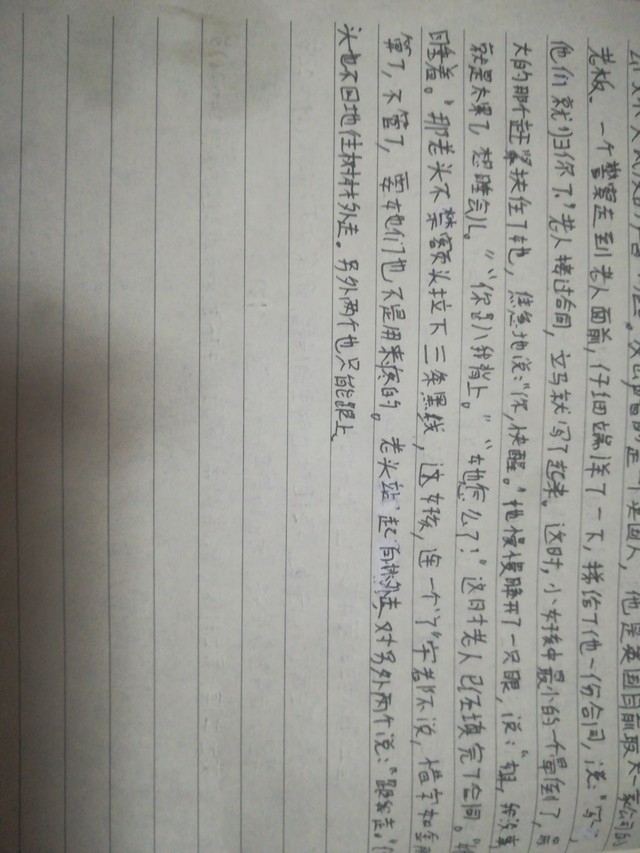 是一个英国人，他是英国目前最大一家公司的
老板。一个警察走到老人面前，仔细端详了一下，递给了他一份合同，说：“写，
他们就归你了。”老人接过合同，立马就写了起来。这时，小女孩中最小的一个晕倒了，
大的那个赶紧扶住了她，焦急地说：“你，快醒。”她慢慢睁开了一只眼，说：“姐，我没事
就是太累了，想睡会儿。”“你趴我背上。”“她怎么了！”这时老人已经填完了合同。
睡着。”那老头不禁额头拉下三条黑线，这女孩，连一个“了”字都不说，惜字如金
算了，不管了，要她们也不是用来疼的。老头站起向林外走，对另外两个说：“跟我走。”
头也不回地往树林外走。另外两个也只能跟上